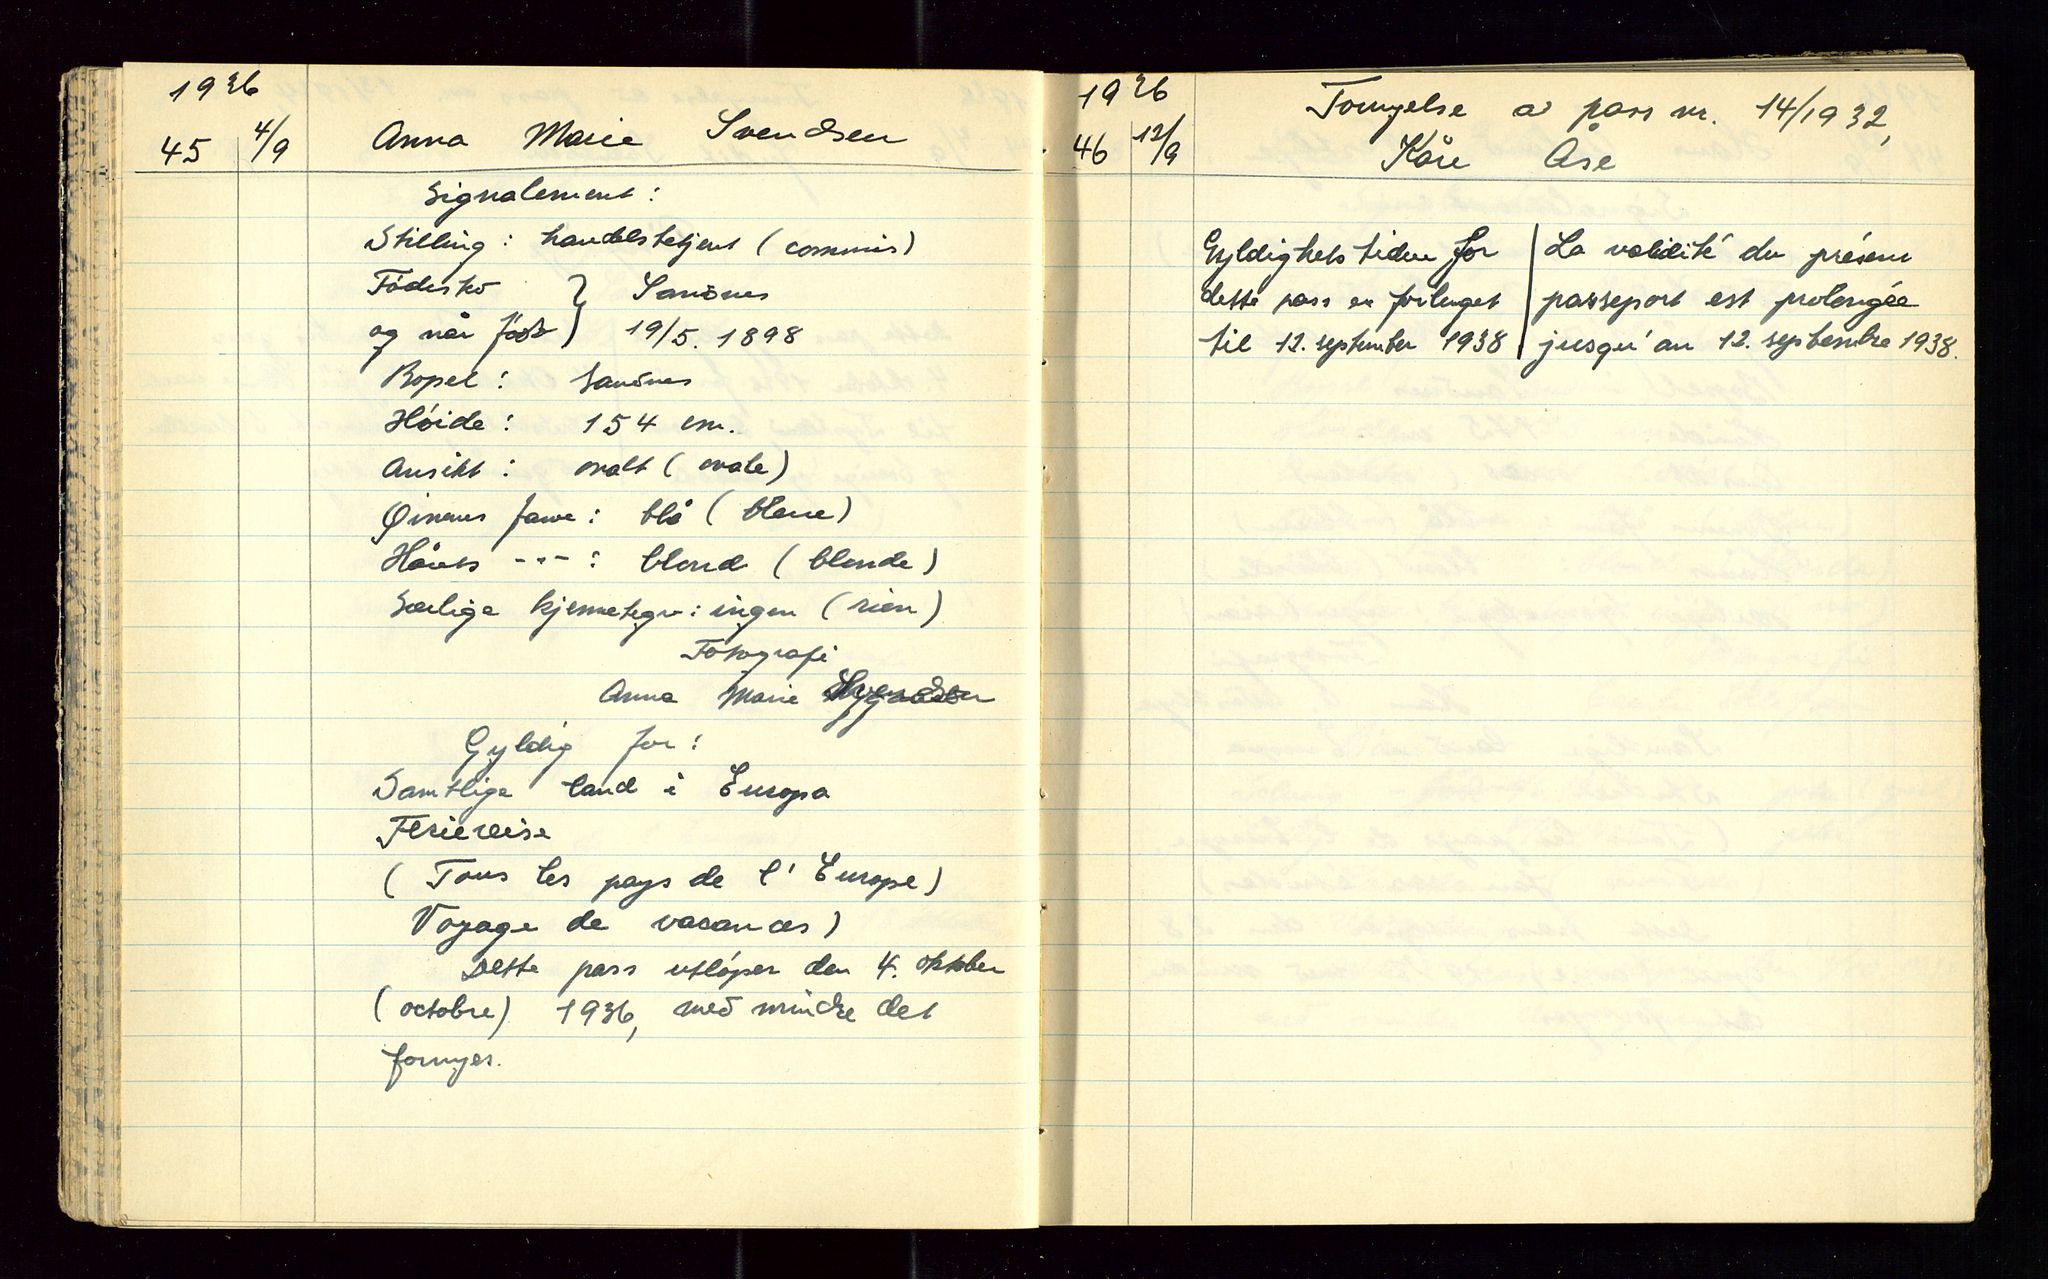 1936
45 4/9 Anna Marie Svendsen
Signalement:
Stilling: handelsbetjent (commis)
Fødested } Sandnes
og når født } 19/5. 1898
Bopel: Sandnes
Høide: 154 cm.
Ansikt: ovalt (ovale)
Øinenes farve: blå (bleue)
Hårets -"-: blond (blonde)
Særlige kjennetegn: ingen (rien)
Fotografi
Anna Marie Svendsen
Gyldig for:
Samtlige land i Europa
Feriereise
(Tous les pays de l'Europe)
Voyage de vacances)
Dette pass utløper den 4. oktober
(octobre) 1936, med mindre det
fornyes.
1936
46 12/9 Fornyelse av pass nr. 14/1932,
Kåre Åse
Gyldighetstiden for
dette pass er forlenget
til 12. september 1938
La validité du présent
passeport est prolongée
jusqu'au 12. septembre 1938.